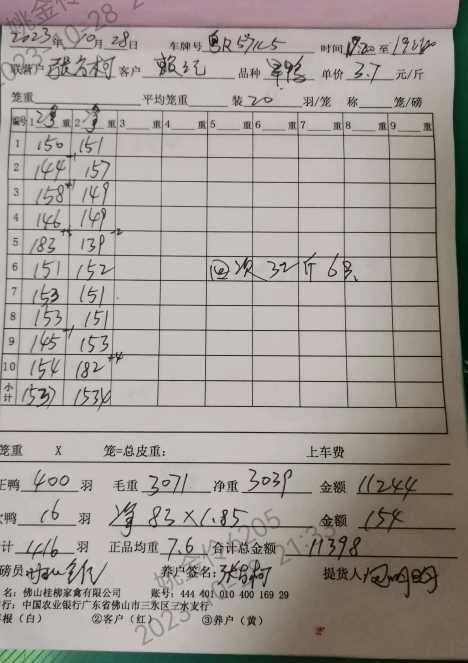 2023年10月28日 车牌号 R57K5 时间 至
联营户 客户 品种 单价 3.7 元/斤
笼重 平均笼重 装 20 羽/笼 称 笼/磅
编号 1 净 重 2 净 重 3 重 4 重 5 重 6 重 7 重 8 重 9 重
1 150 151
2 144 +1 157
3 158 149
4 146 149
5 183 +3 139 -2
6 151 152 回次 32斤 6只
7 153 151
8 153 151
9 145 +1 153
10 154 182 +4
小计 1537 1534
笼重 X 笼=总皮重: 上车费
正鸭 400 羽 毛重 3071 净重 3039 金额 11244
鸭 16 羽 净 83 X 1.85 金额 154
计 416 羽 正品均重 7.6 合计总金额 11398
磅员 养户签名: 提货人
名: 佛山桂柳家禽有限公司 账号: 444 401 010 400 169 29
行: 中国农业银行广东省佛山市三水区三水支行
(白) ②客户(红) ③养户(黄)